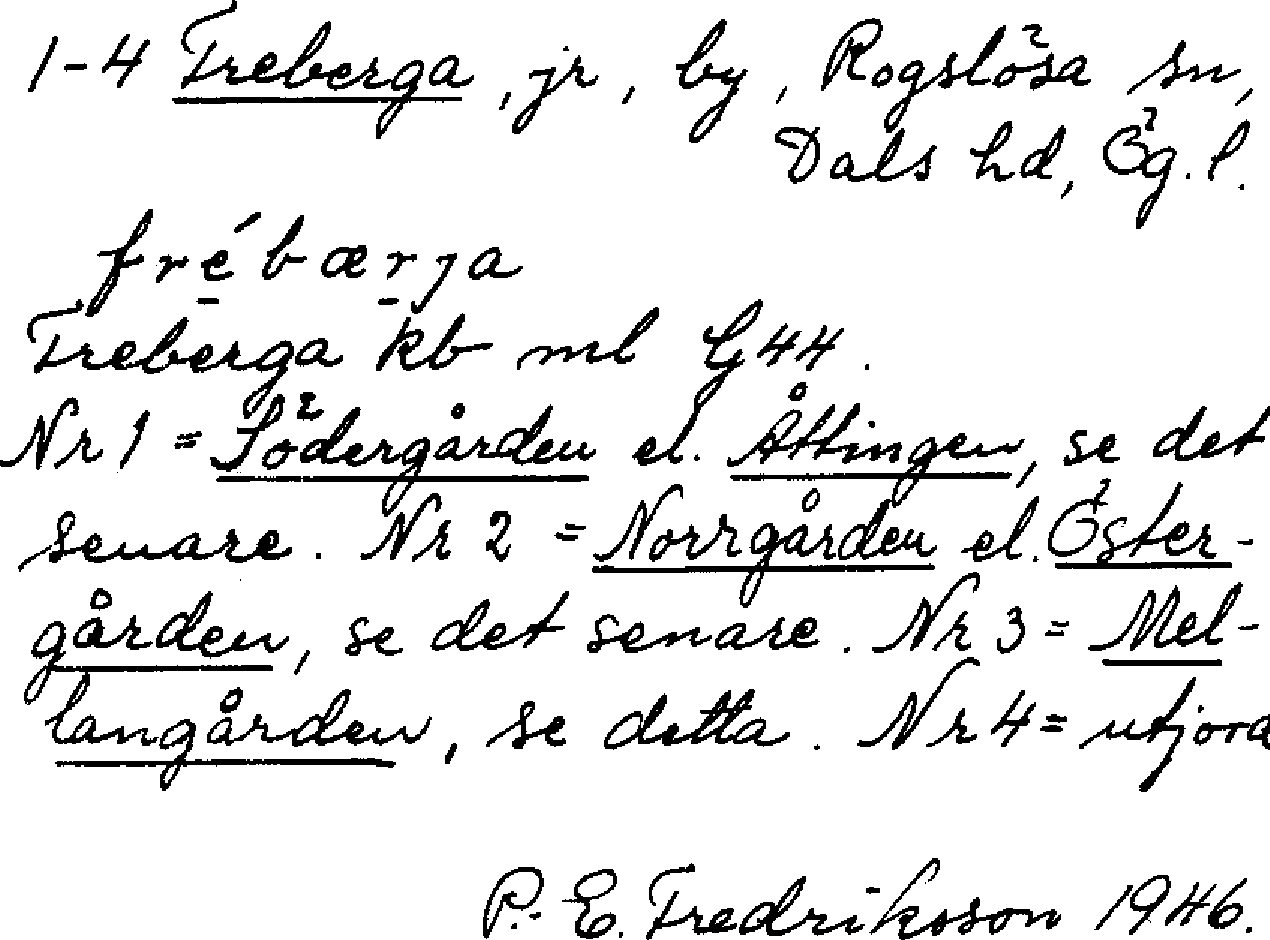 1-4 Freberga, jr, by, Rogslösa sn,
Dals hd, Ög.l.
frébærja
Freberga kb ml G44.
Nr 1 = Södergården el. Åttingen, se det
senare. Nr 2 = Norrgården el. Öster-
gården, se det senare. Nr 3 = Mel-
langården, se detta. Nr 4 = utjord
P.E. Fredriksson 1946.